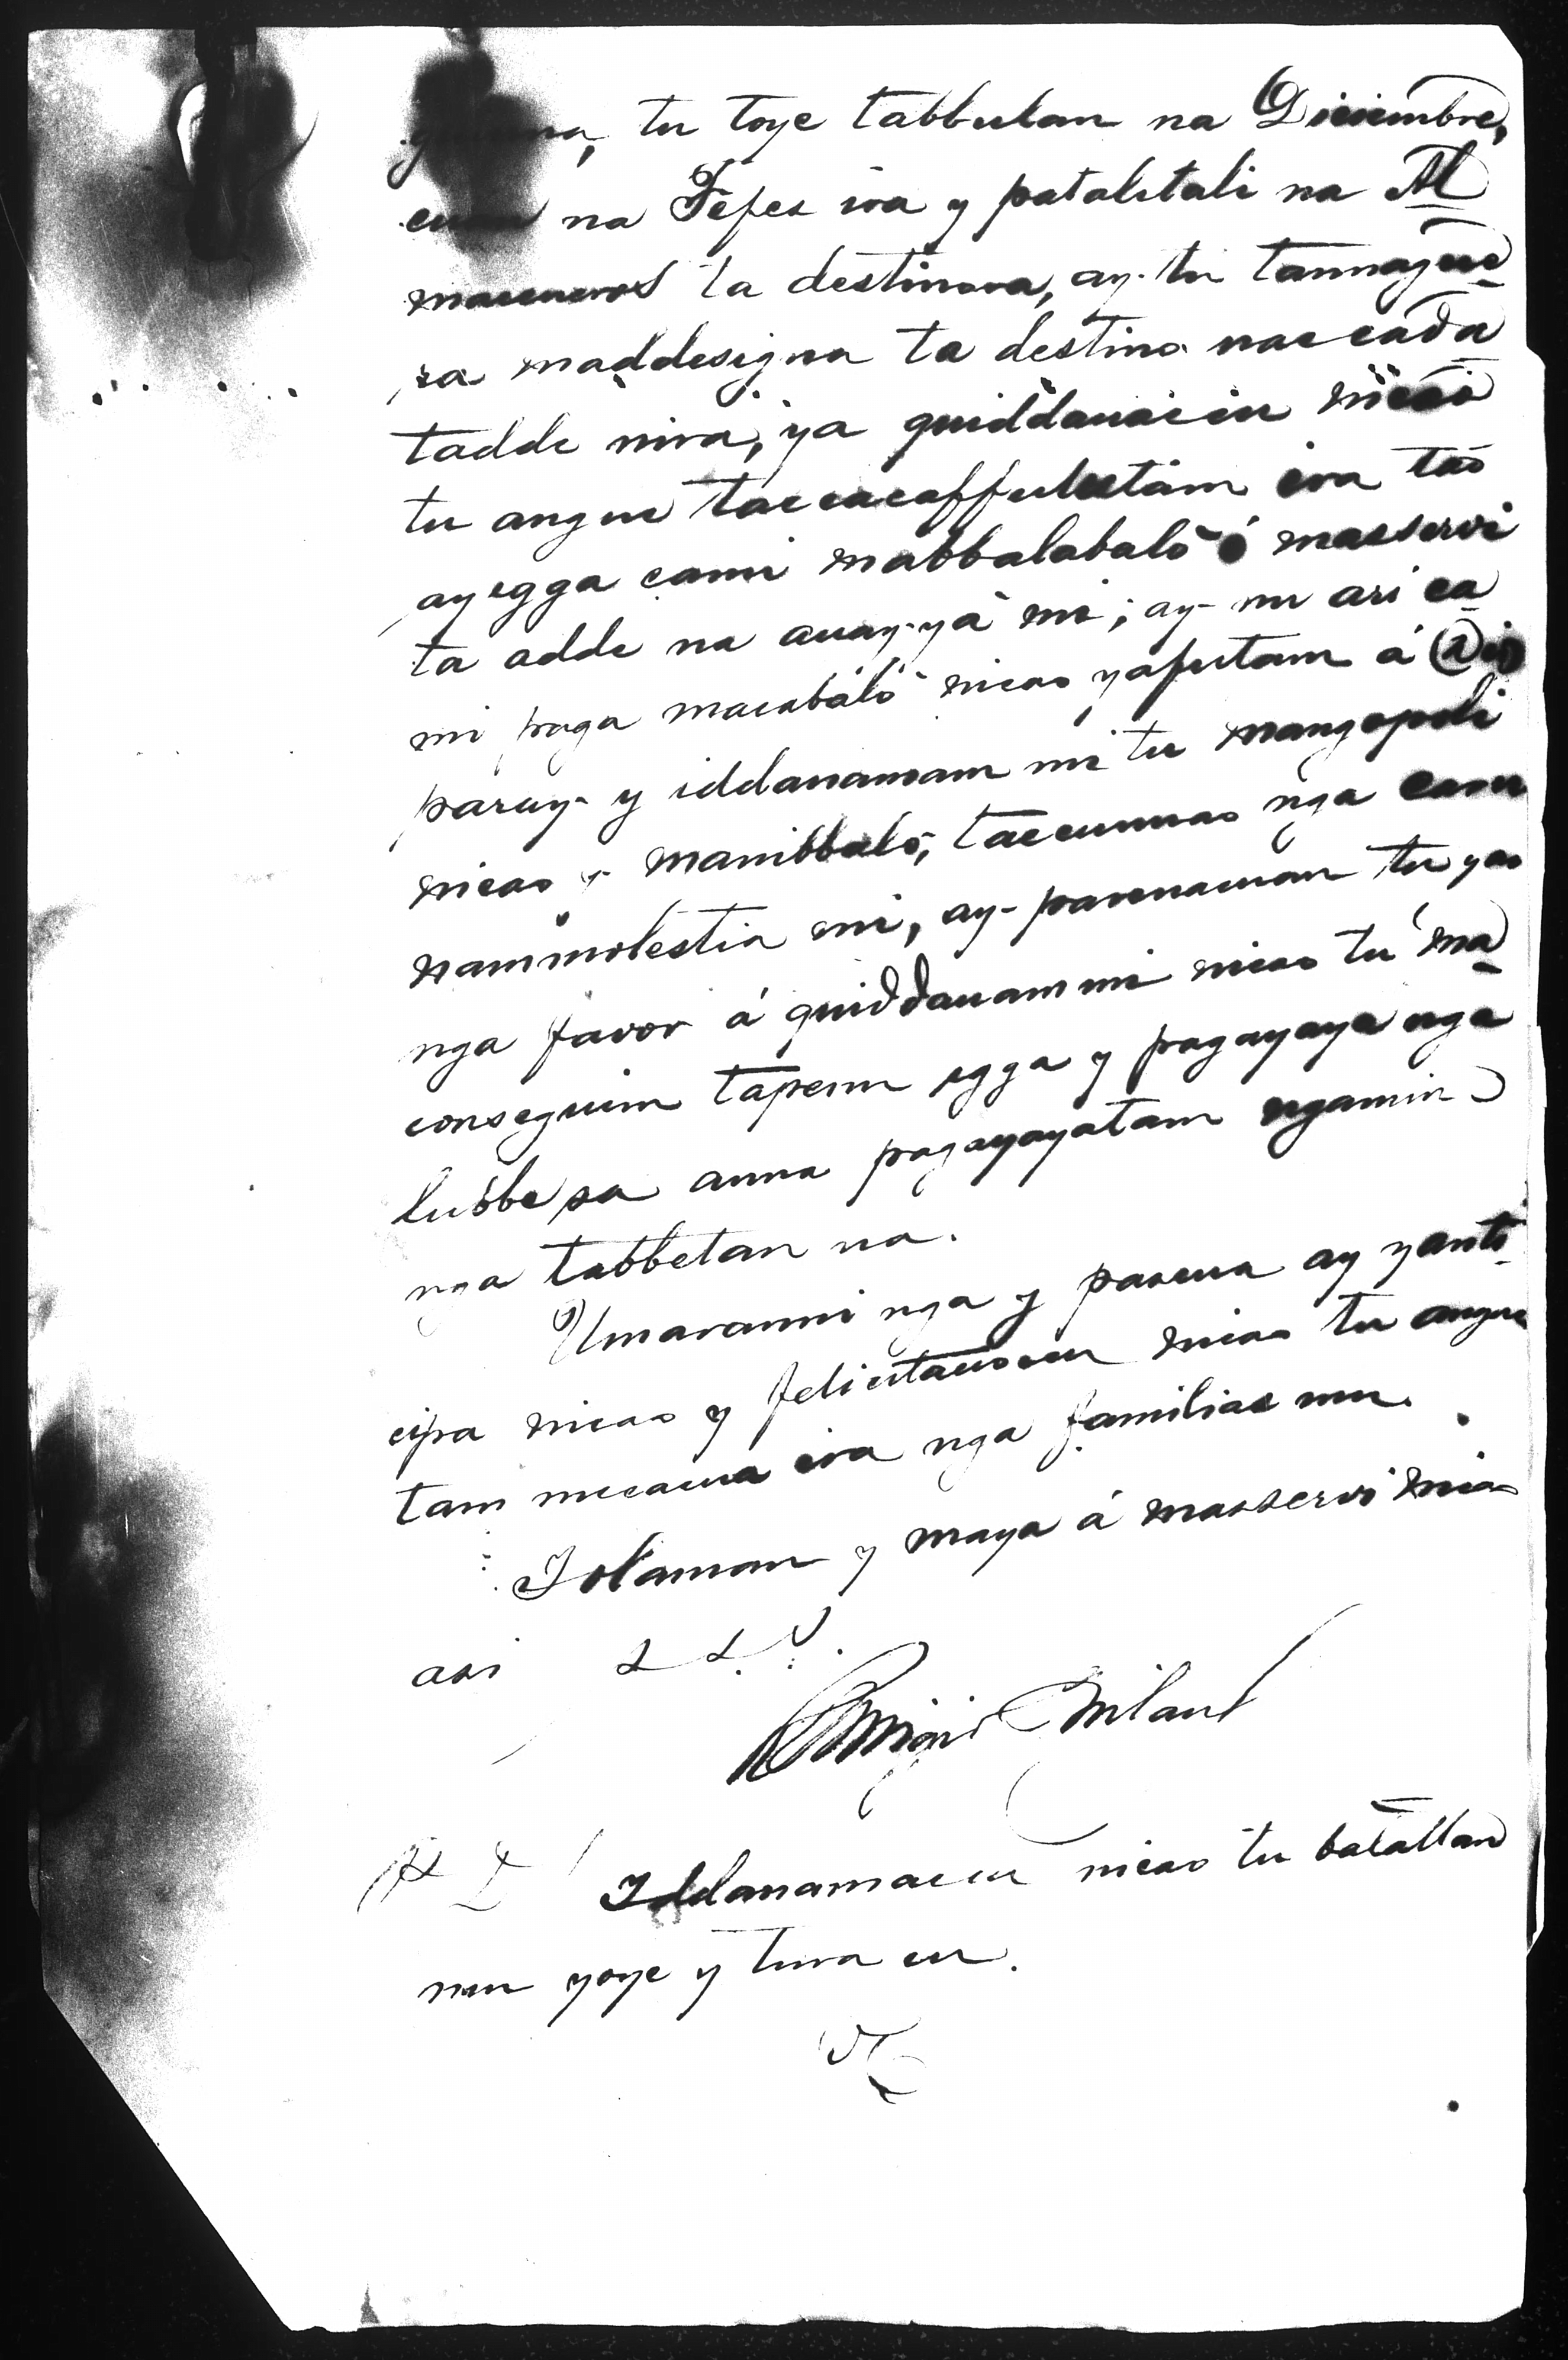 tu toye tabbulan na Diciembre,
na Fefes ira y patalitali na Al
macenero ta destinora, ay tu tannague
ra maddesigna ta destino naccada
tadde nira, ya quiddauaccu nicao
tu angue taccacaffulutam ira tao
ay egga cami mabbalabalo ó masservi
ta adde na auay-ya mi; ay- nu ari ca
mi paga macabálo nicao yafutam á Dios
paray- y iddanamam mi tu mangopoli
nicao y manibbalo, taccunnao nga cam
nammolestia mi, ay- pannauan tu yao
nga favor á quiddauammi nicao tu ma
conseguim tapenu egga y pagayaya nga
lubbe sa anna pagayayatam ngamin
nga tabbetan na.
Umaranni nga y pascua ay yanti
cipa nicao y felicitacioccu nicao tu angue
tam mecacua ira nga familias mu.
Iolaman y maya á masservi nicao
asi S. S. V.
P. D. Iddanamaccu nicao tu batallan
mu yoye y tura cu.